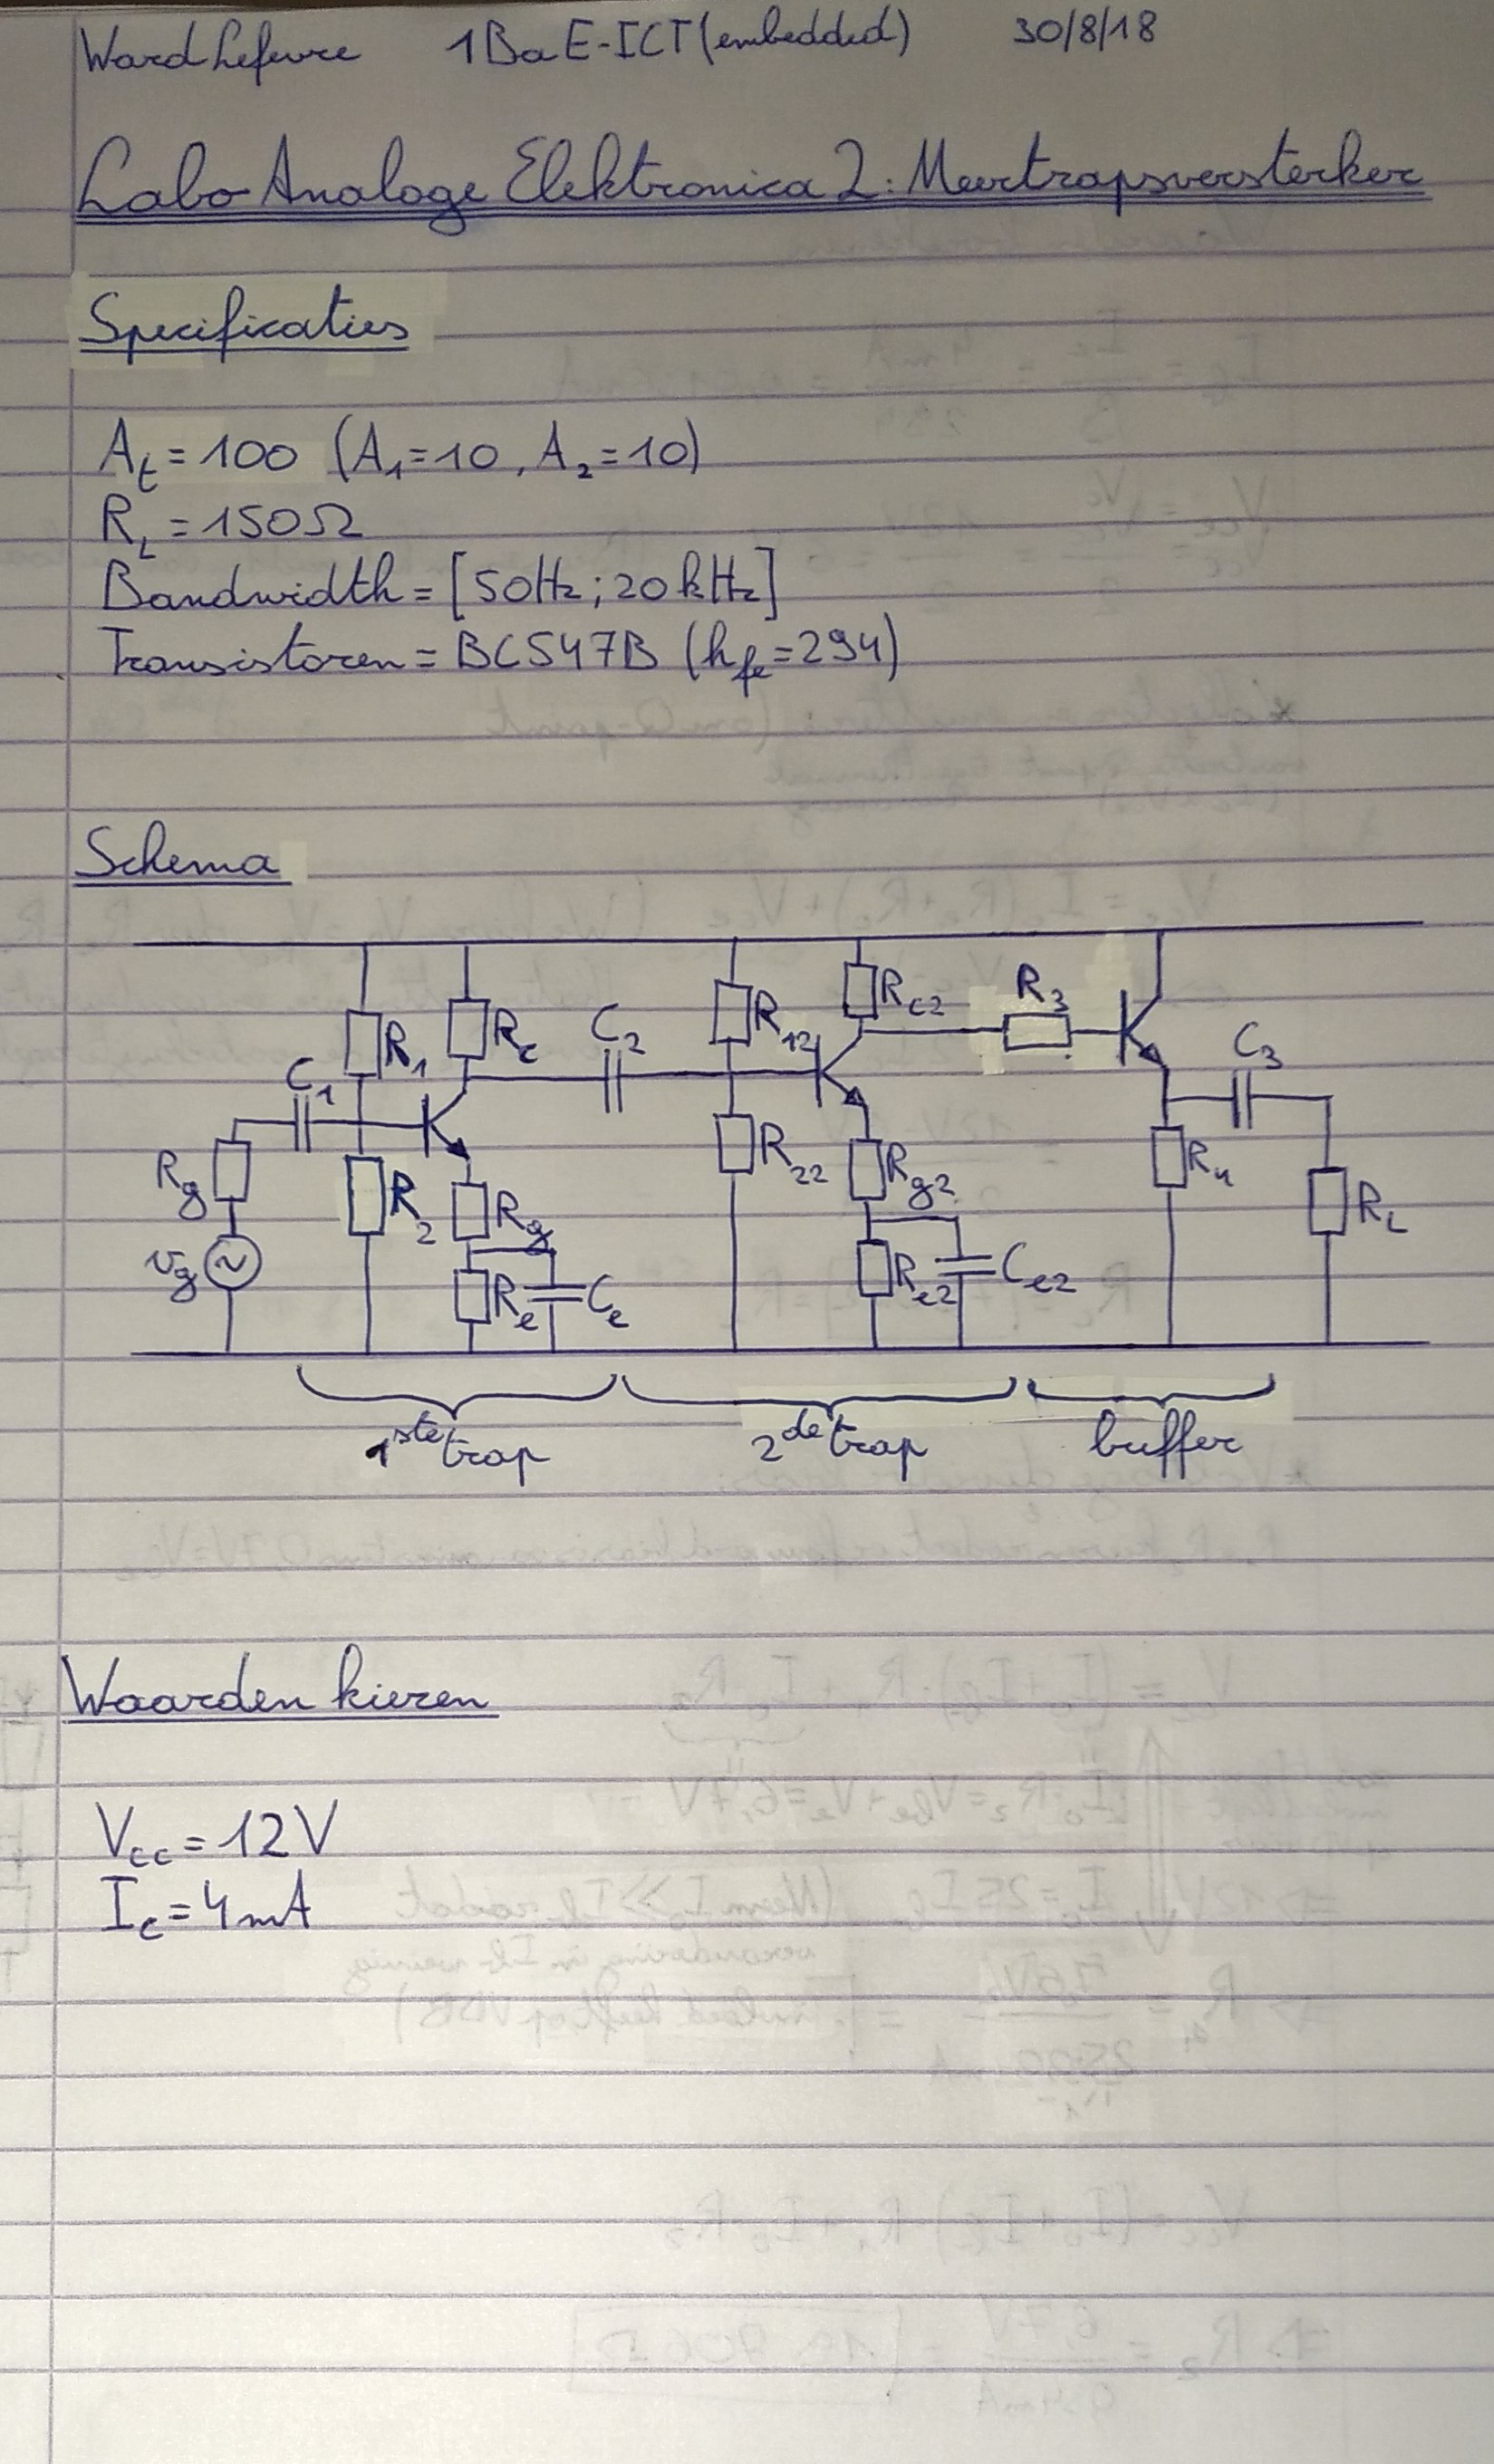 Ward Lefevre 1Ba E-ICT (embedded) 30/8/18
Labo Analoge Elektronica 2: Meertrapsversterker
Specificaties
A_t = 100 (A_1 = 10, A_2 = 10)
R_L = 150Ω
Bandwidth = [50Hz ; 20kHz]
Transistoren = BC547B (h_fe = 294)
Schema
R_1 R_c C_2 R_12 R_c2 R_3
C_1 C_3
R_g R_2 R_g R_22 R_g2 R_4 R_L
v_g R_e C_e R_e2 C_e2
1ste trap 2de trap buffer
Waarden kiezen
V_cc = 12V
I_c = 4mA